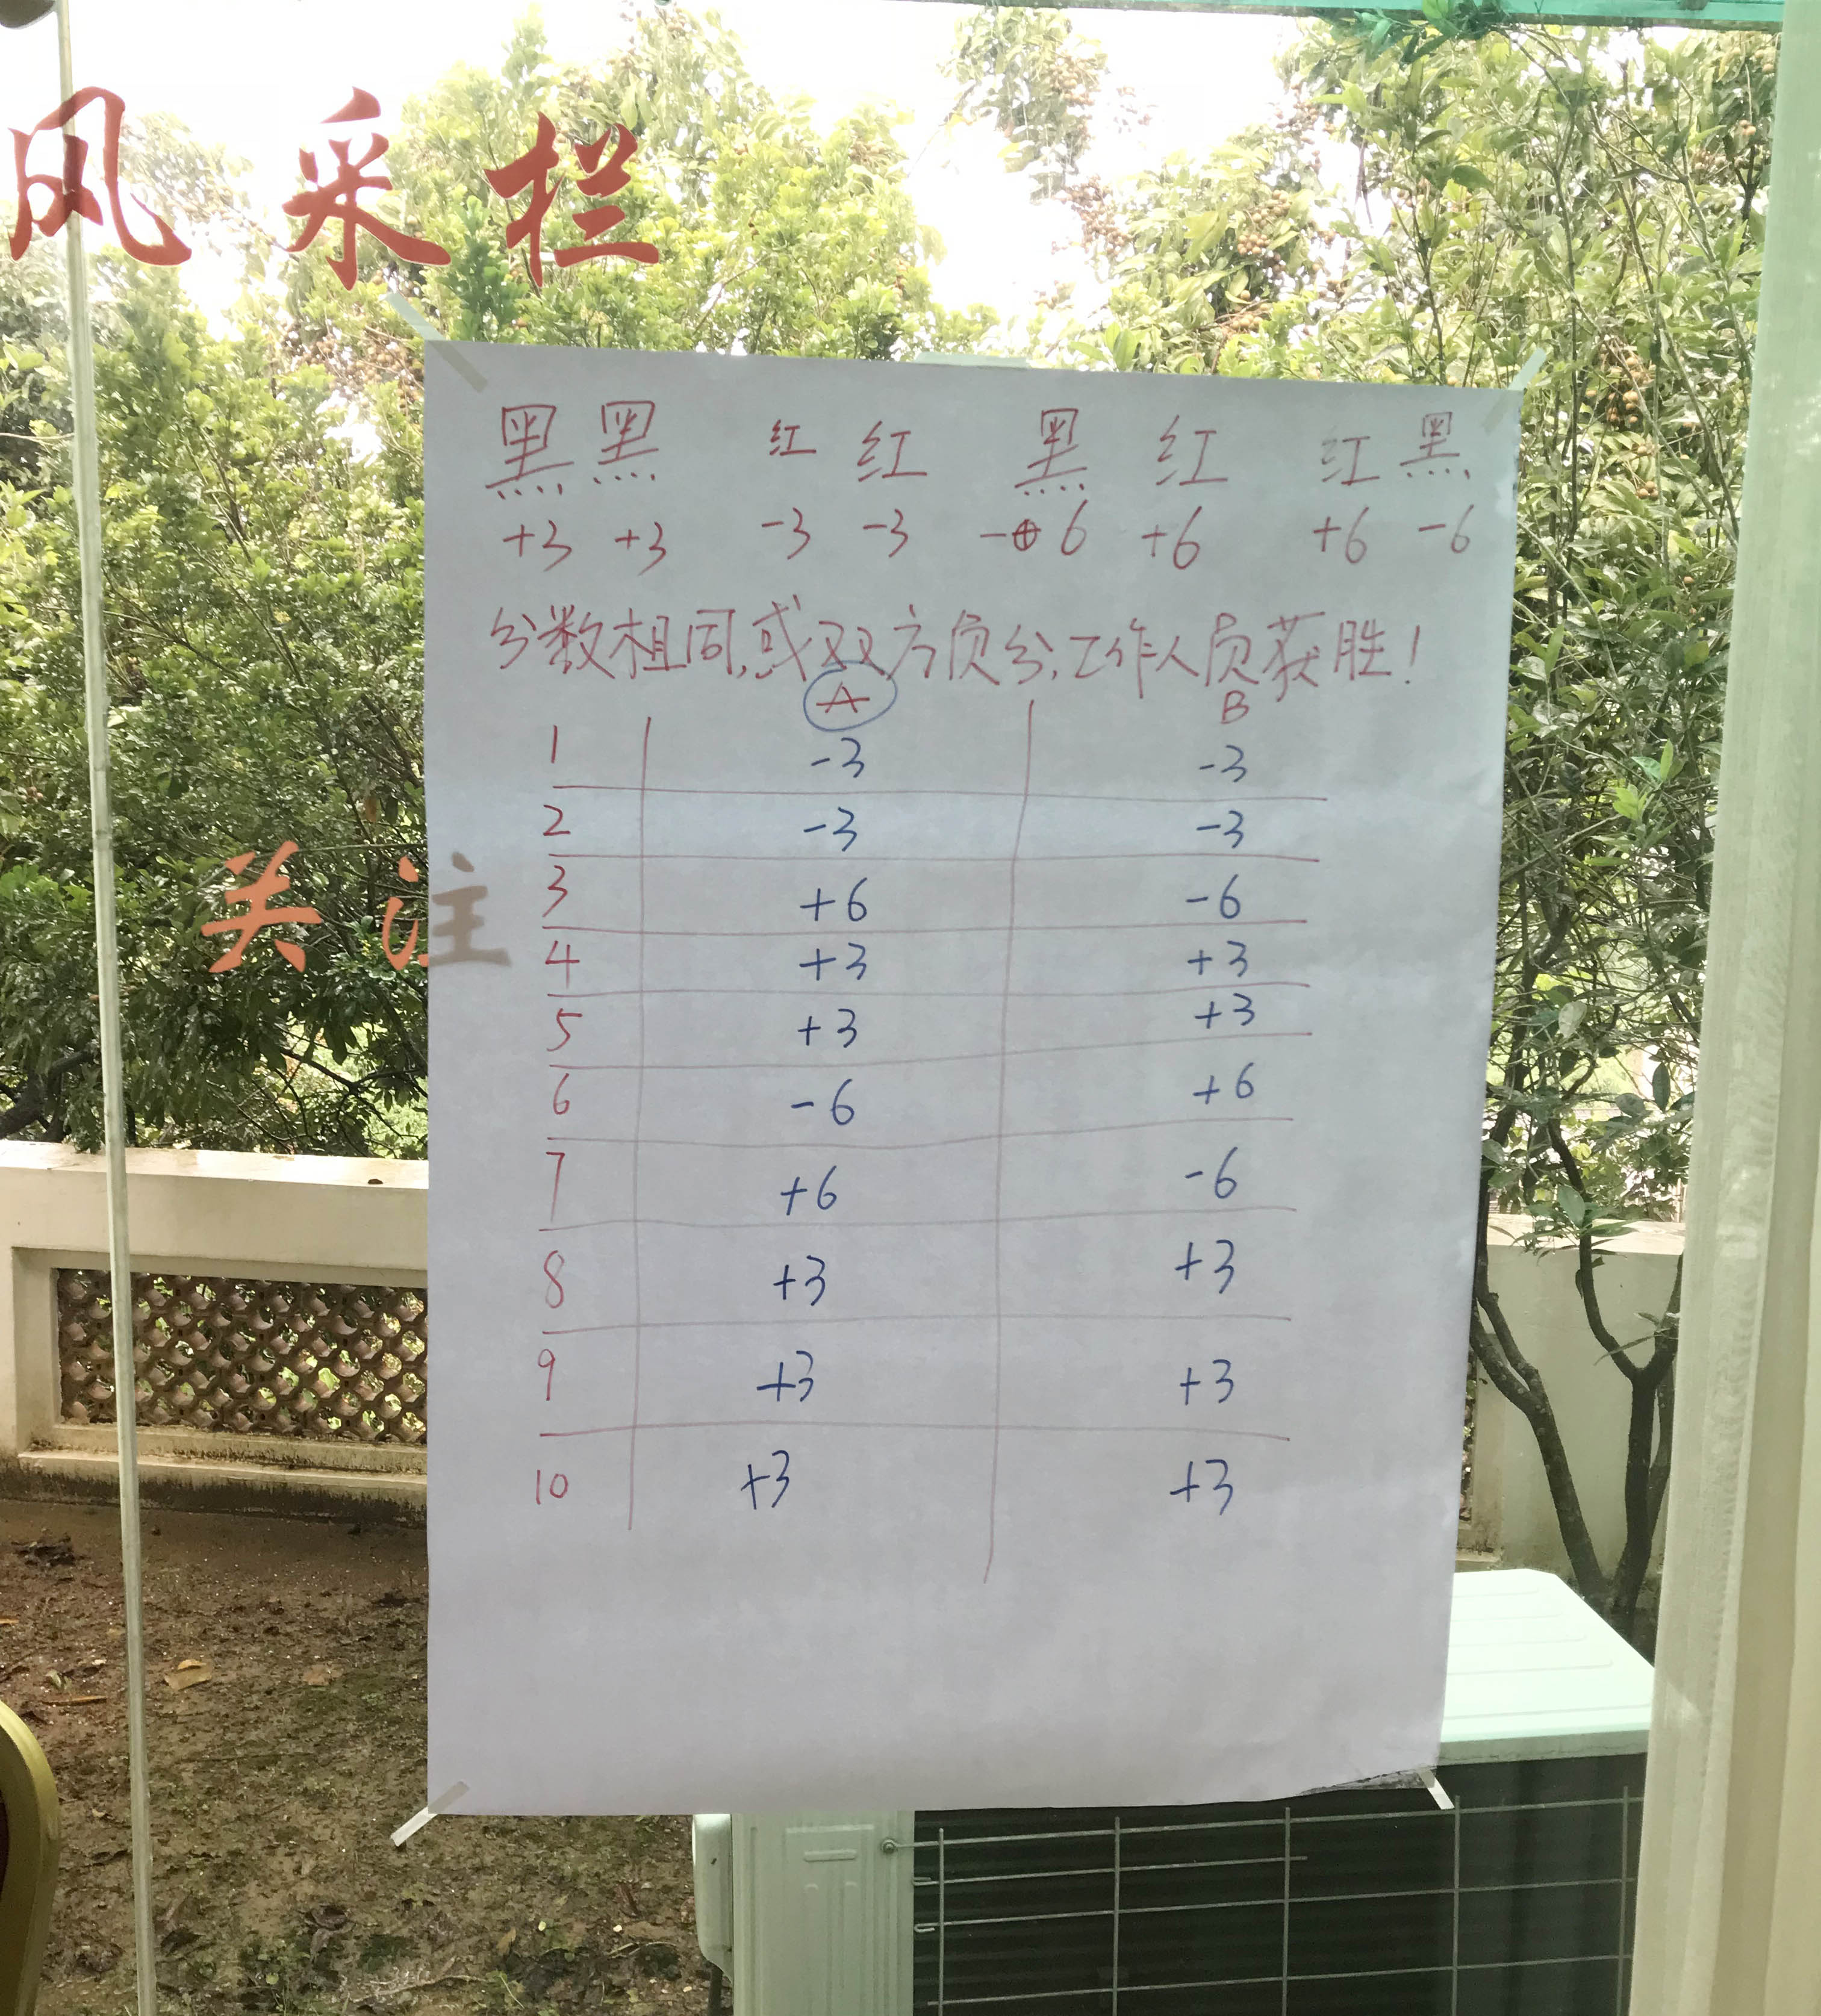 风采栏
黑黑 红红 黑红 红黑
+3 +3 -3 -3 -6 +6 +6 -6
分数相同,或双方负分,工作人员获胜!
A B
1 -3 -3
2 -3 -3
3 +6 -6
关注
4 +3 +3
5 +3 +3
6 -6 +6
7 +6 -6
8 +3 +3
9 +3 +3
10 +3 +3